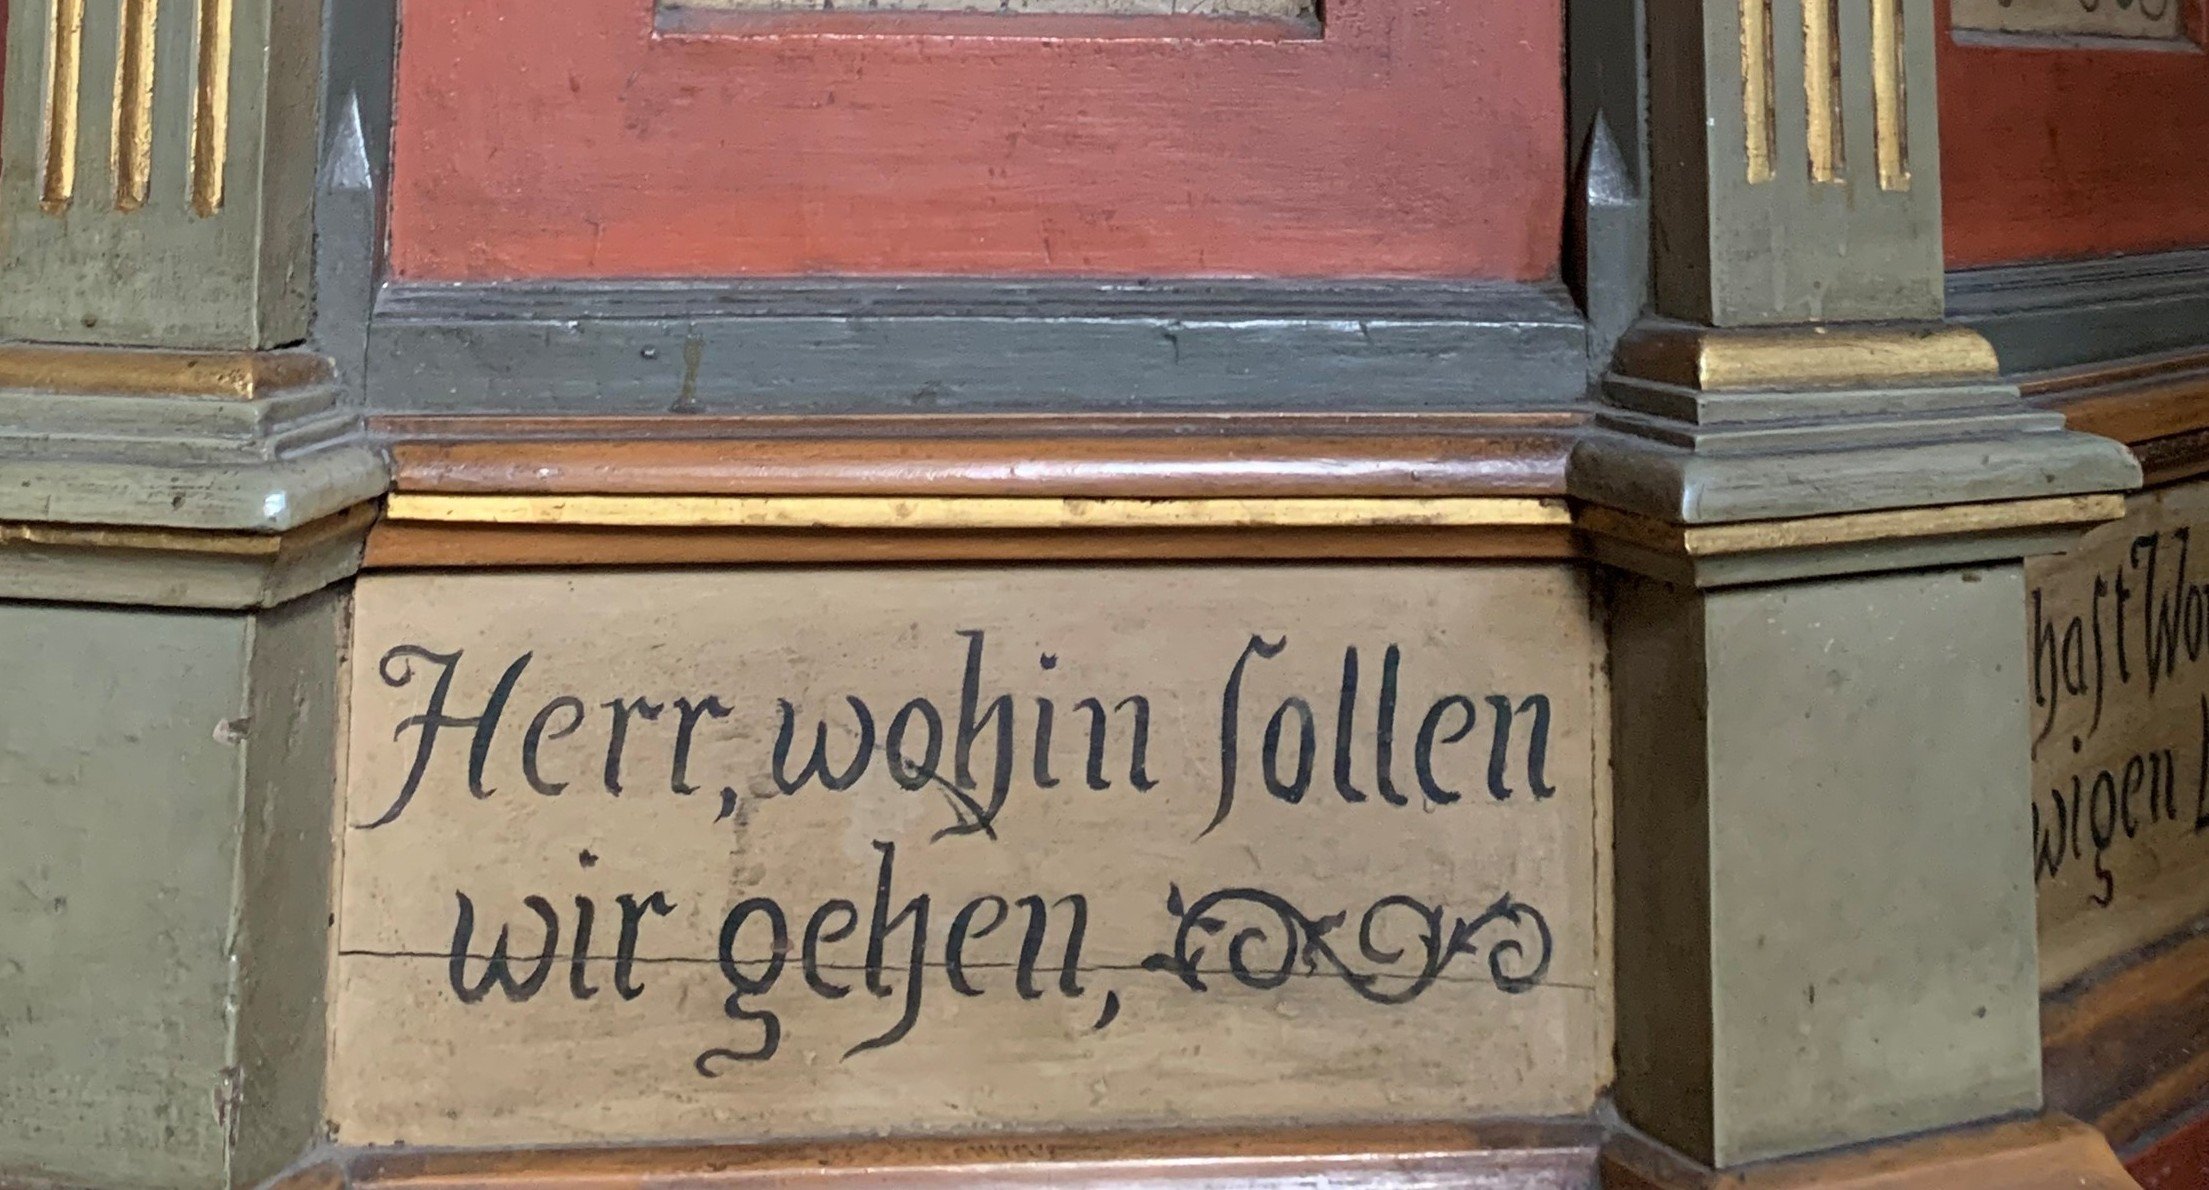 Herr, wohin sollen
wir gehen,
hast Wor
wigen